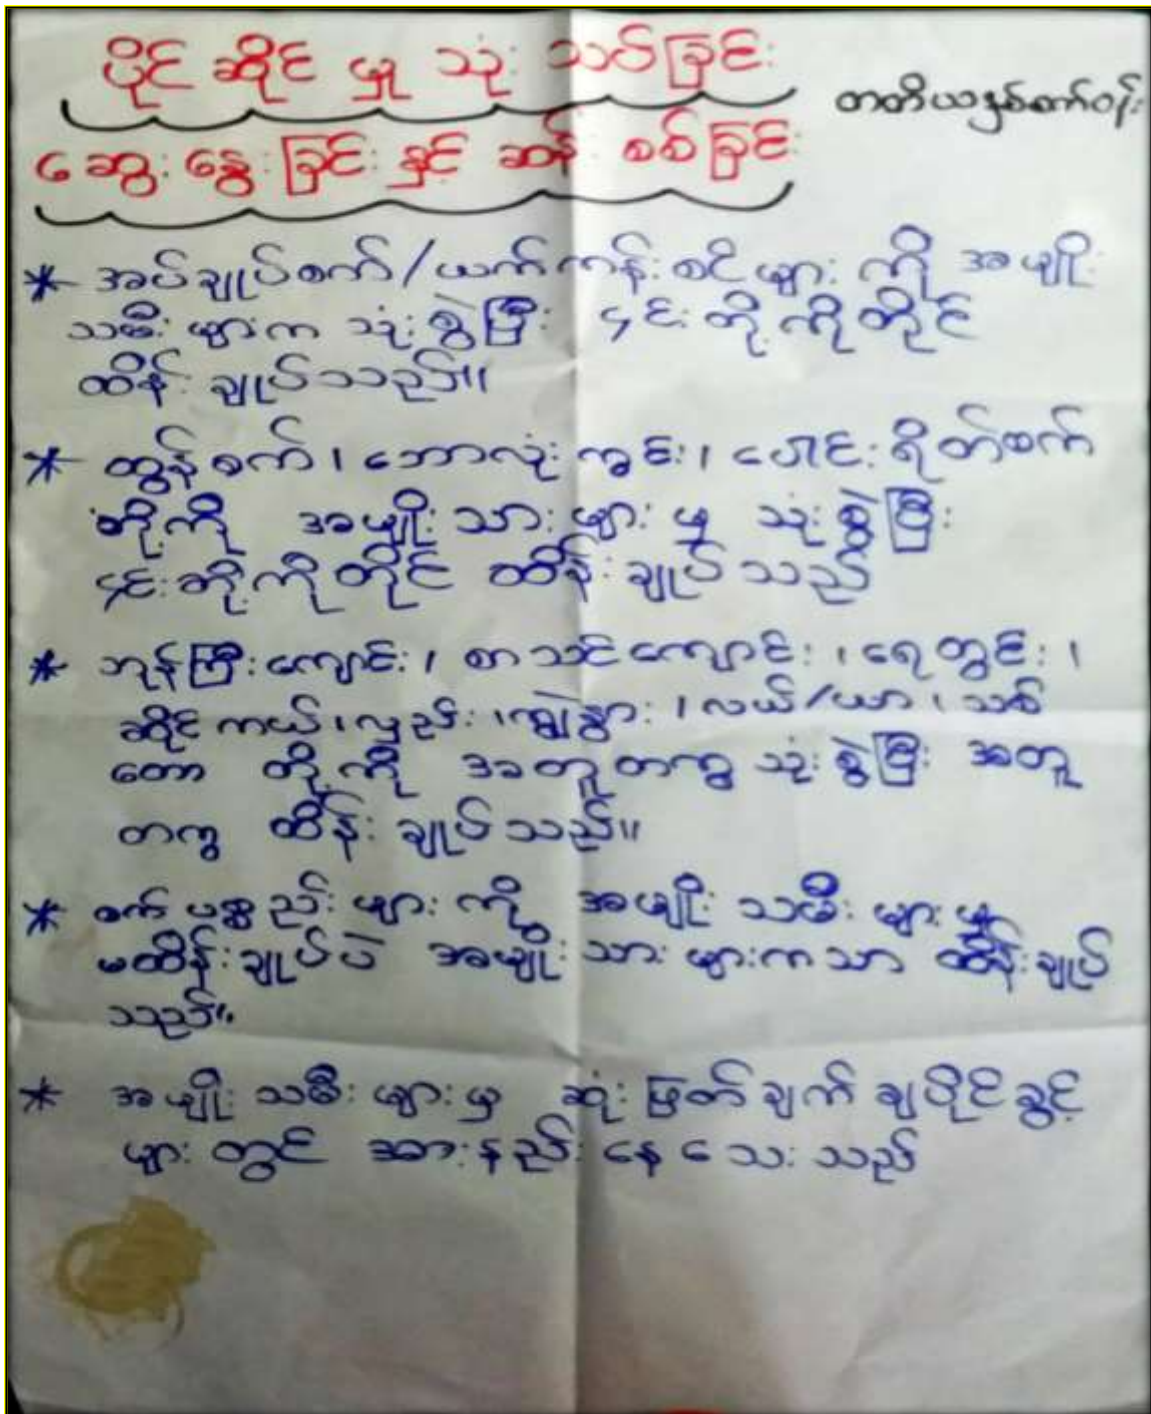 ပိုင်ဆိုင်မှု သုံးသပ်ခြင်း
တတိယနှစ်စက်ဝန်း
ဆွေးနွေးခြင်းနှင့် ဆန်းစစ်ခြင်း
* အပ်ချုပ်စက်/ယက်ကန်းစင်များကို အမျိုး
သမီးများက သုံးစွဲပြီး ၎င်းတို့ကိုယ်တိုင်
ထိန်းချုပ်သည်။
* ထွန်စက်၊ ဘောလုံးကွင်း၊ ပေါင်းရိတ်စက်
တို့ကို အမျိုးသားများမှ သုံးစွဲပြီး
၎င်းတို့ကိုတိုင် ထိန်းချုပ်သည်
* ဘုန်ကြီးကျောင်း၊ စာသင်ကျောင်း၊ ရေတွင်း၊
ဆိုင်ကယ်၊ လှည်း၊ ကျွဲနွား၊ လယ်/ယာ၊ သစ်
တော တို့ကို အတူတကွ သုံးစွဲပြီး အတူ
တကွ ထိန်းချုပ်သည်။
* စက်ပစ္စည်းများကို အမျိုးသမီးများမှ
မထိန်းချုပ်ပဲ အမျိုးသားများကသာ ထိန်းချုပ်
သည်။
* အမျိုးသမီးများမှ ဆုံးဖြတ်ချက်ချပိုင်ခွင့်
များတွင် အားနည်းနေသေးသည်